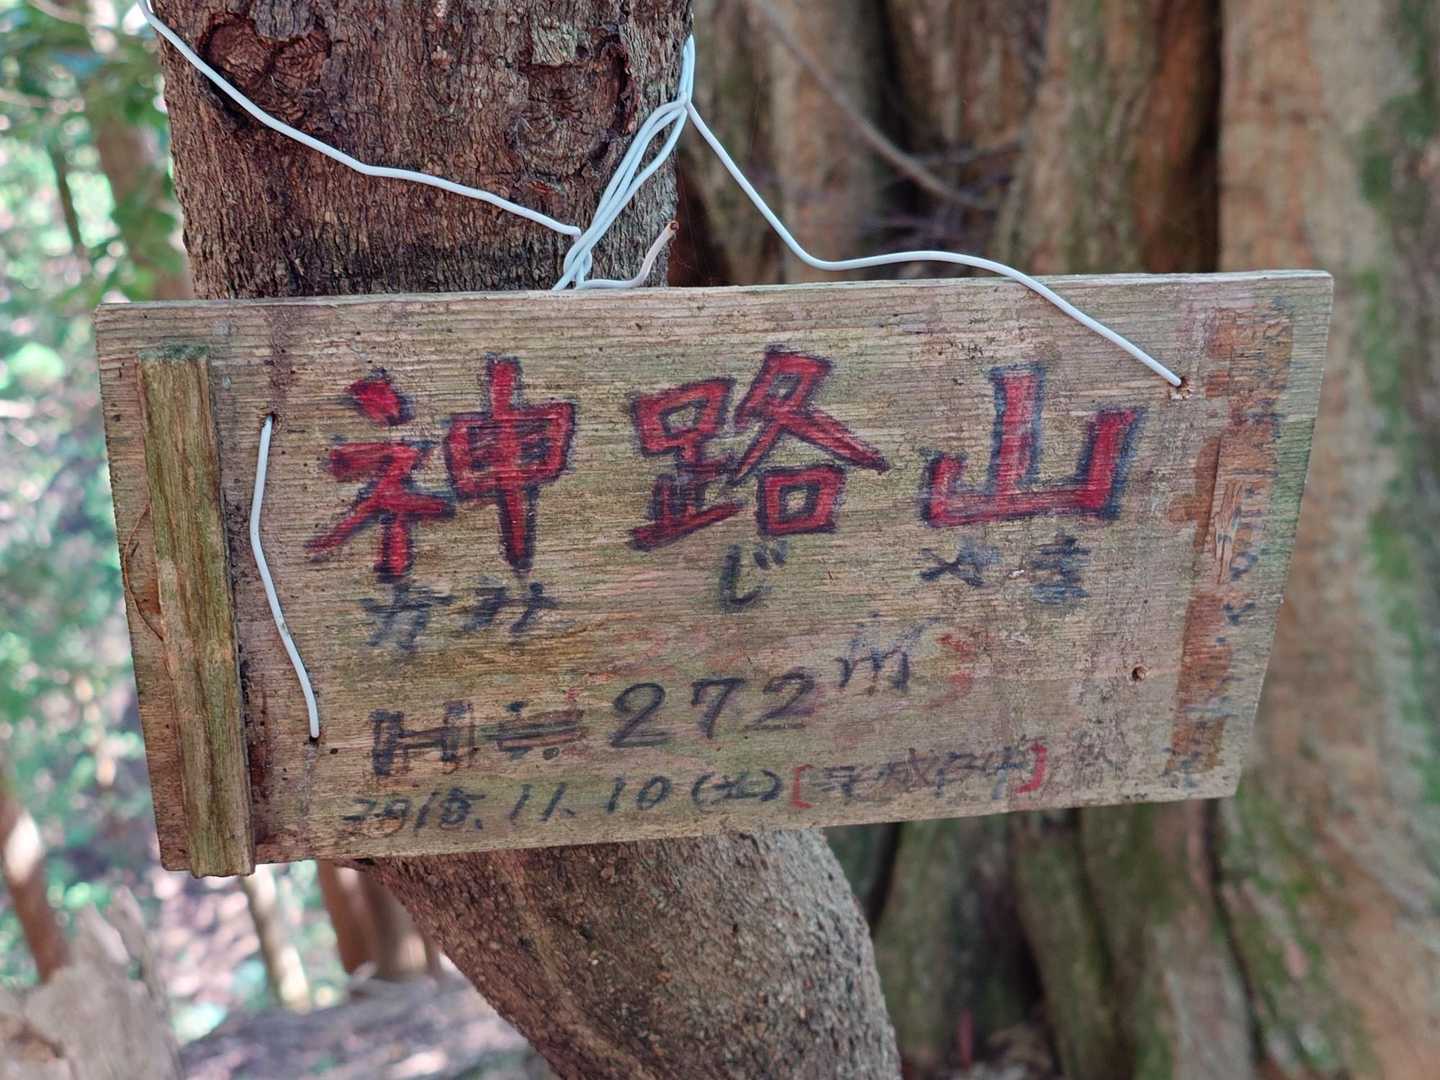 神路山
かみ じ やま
H≒272m
11.10(火)[平成27年]